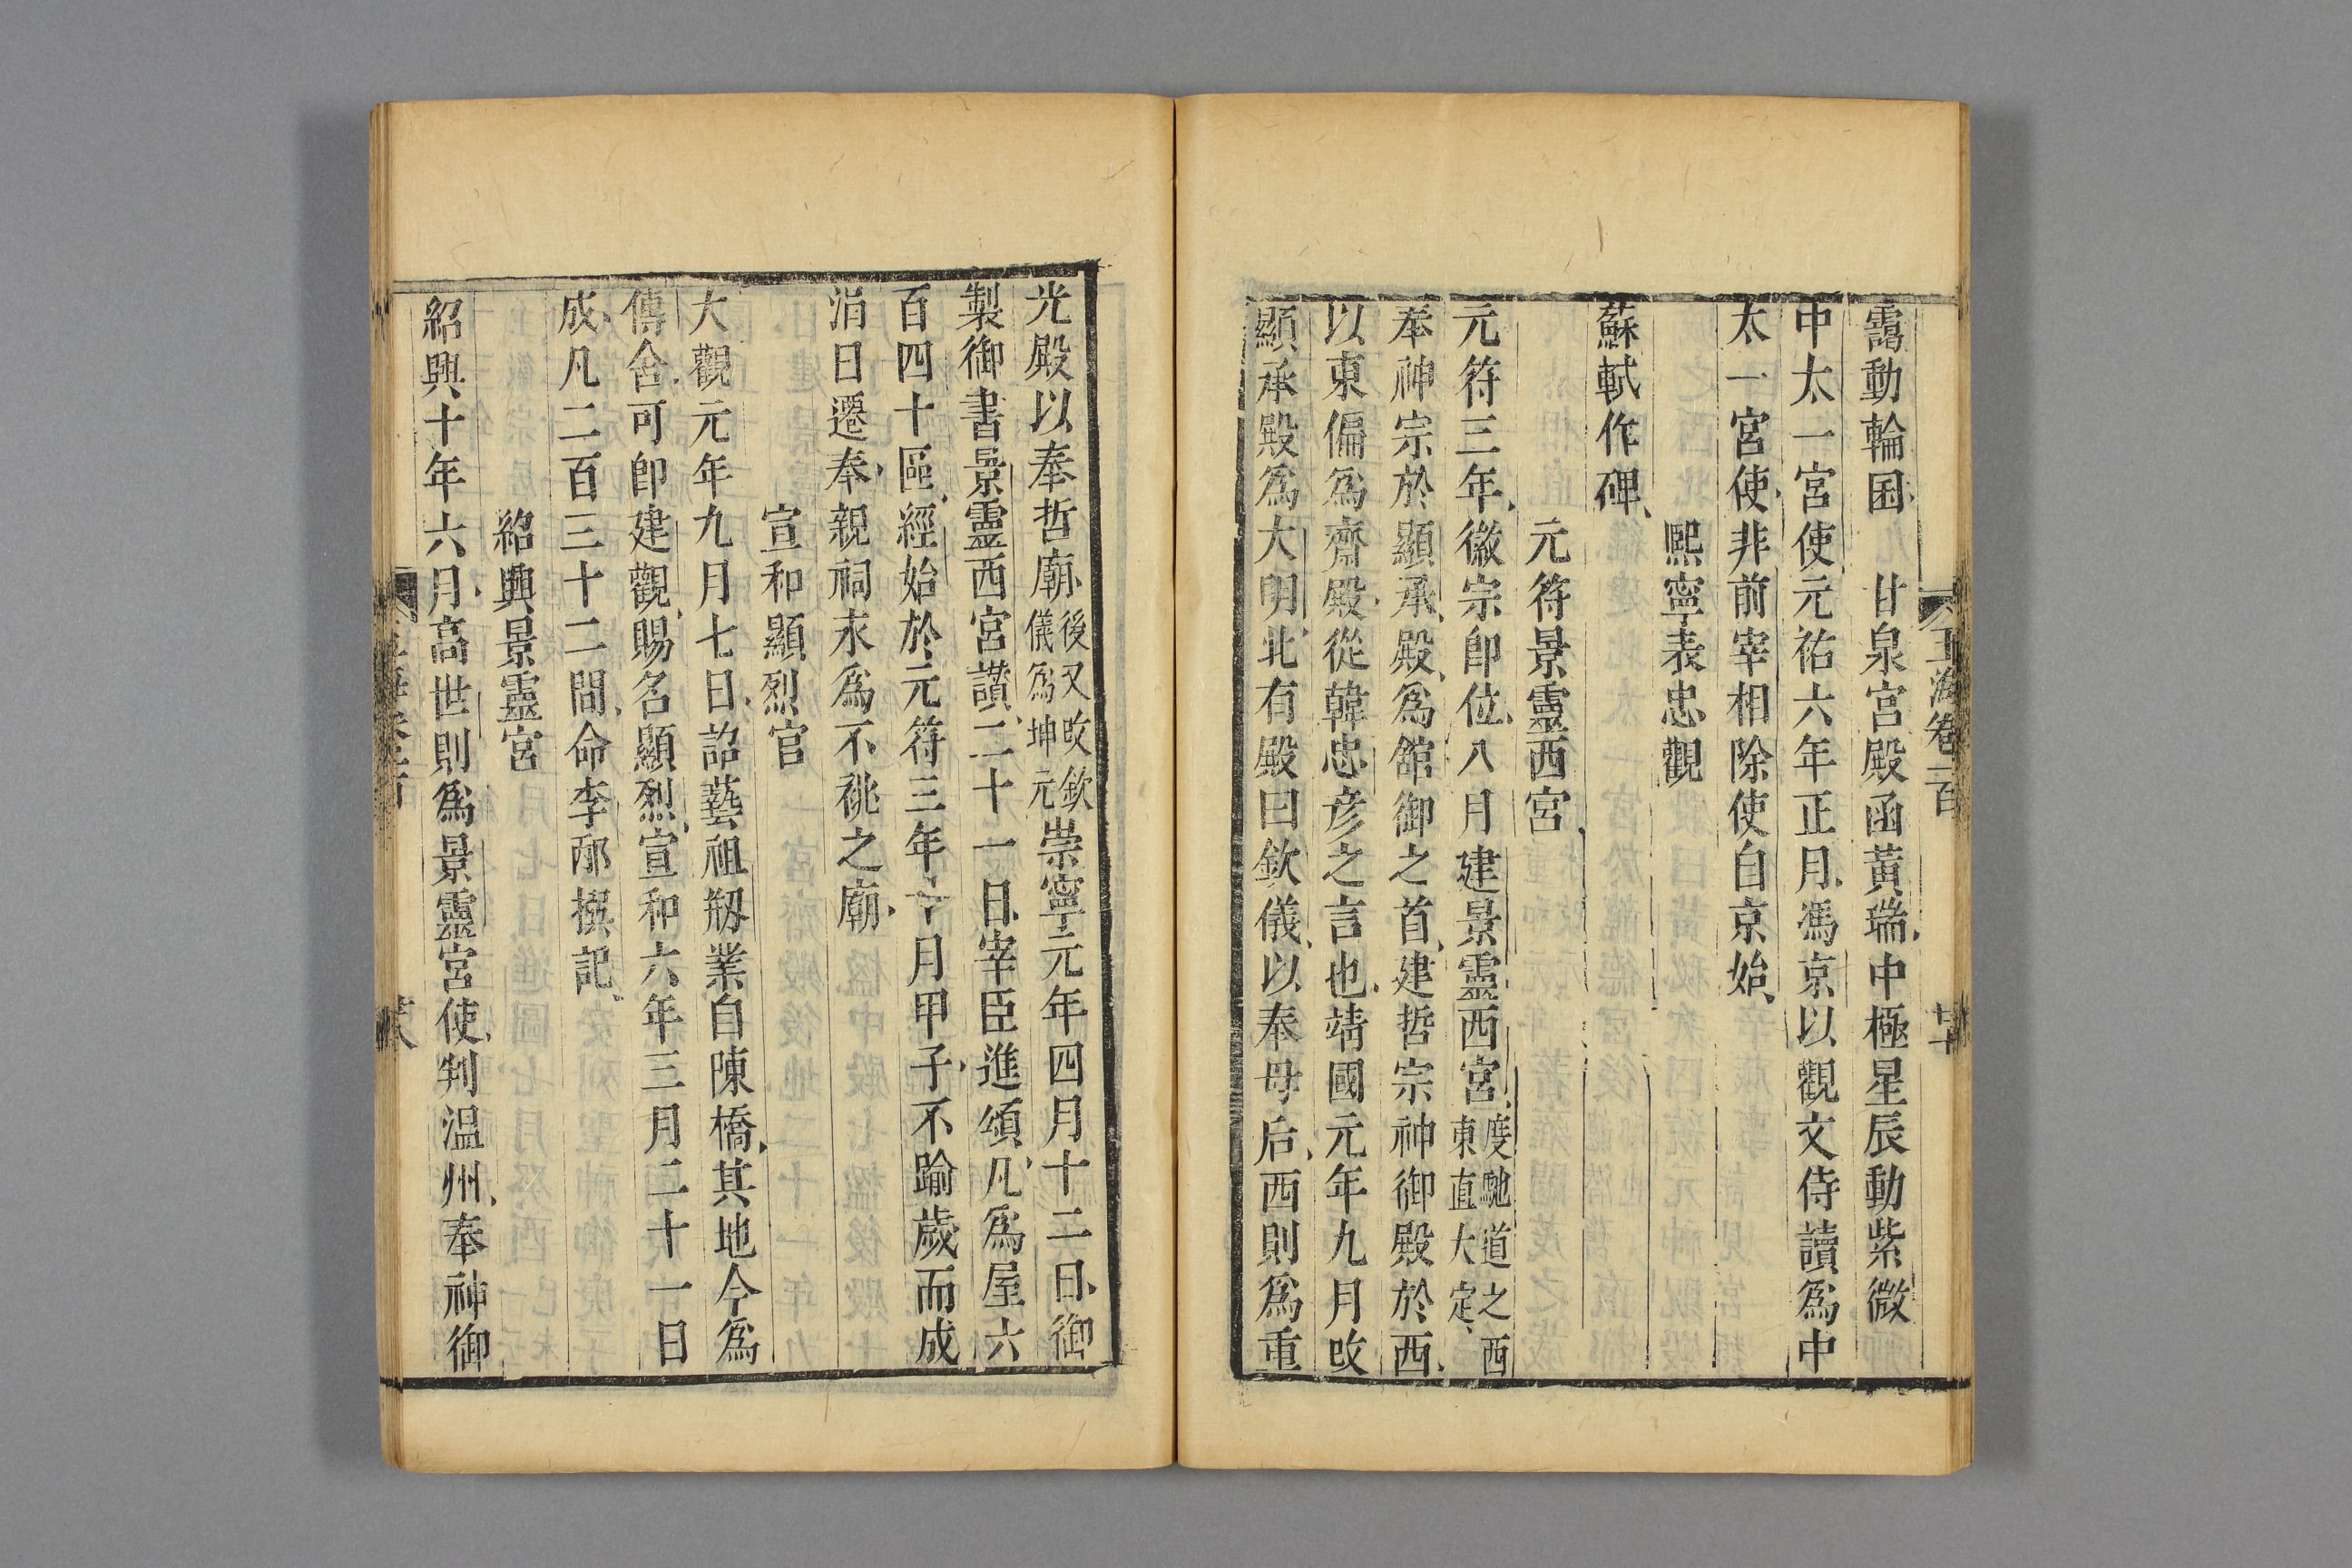 玉海卷一百
靄動輪囷 甘泉宮殿函黃瑞中極星辰動紫微
中太一宮使元祐六年正月馮京以觀文侍讀爲中
太一宮使非前宰相除使自京始
熙寧表忠觀
蘇軾作碑
元符景靈西宮
元符三年徽宗卽位八月建景靈西宮度馳道之西東直大定
奉神宗於顯承殿爲舘御之首建哲宗神御殿於西
以東偏爲齋殿從韓忠彦之言也靖國元年九月攺
顯承殿爲大明北有殿曰欽儀以奉母后西則爲重
光殿以奉哲廟後又攺欽儀爲坤元崇寧元年四月十二日御
製御書景靈西宮讃二十一日宰臣進頌凡爲屋六
百四十區經始於元符三年十月甲子不踰歲而成
涓日遷奉親祠永爲不祧之廟
宣和顯烈官
大觀元年九月七日詔藝祖剏業自陳橋其地今爲
傳舍可卽建觀賜名顯烈宣和六年三月二十一日
成凡二百三十二間命李邴撰記
紹興景靈宮
紹興十年六月高世則爲景靈宮使判温州奉神御